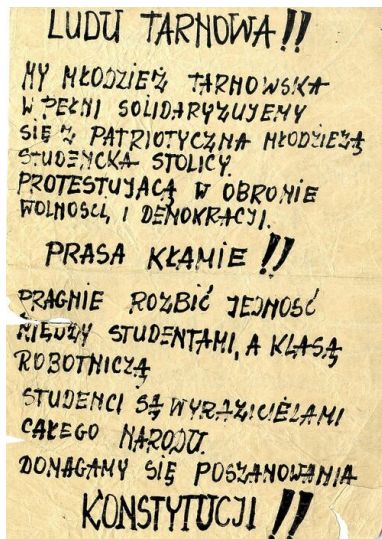 LUDU TARNOWA!!
MY MŁODZIEŻ TARNOWSKA
W PEŁNI SOLIDARYZUJEMY
SIĘ Z PATRIOTYCZNA MŁODZIEŻĄ
STUDENCKA STOLICY.
PROTESTUJĄCĄ W OBRONIE
WOLNOŚCI, I DEMOKRACJI.
PRASA KŁAMIE!!
PRAGNIE ROZBIĆ JEDNOŚĆ
MIĘDZY STUDENTAMI, A KLASĄ
ROBOTNICZĄ
STUDENCI SĄ WYRAZICIELAMI
CAŁEGO NARODU.
DOMAGAMY SIĘ POSZANOWANIA
KONSTYTUCJI!!